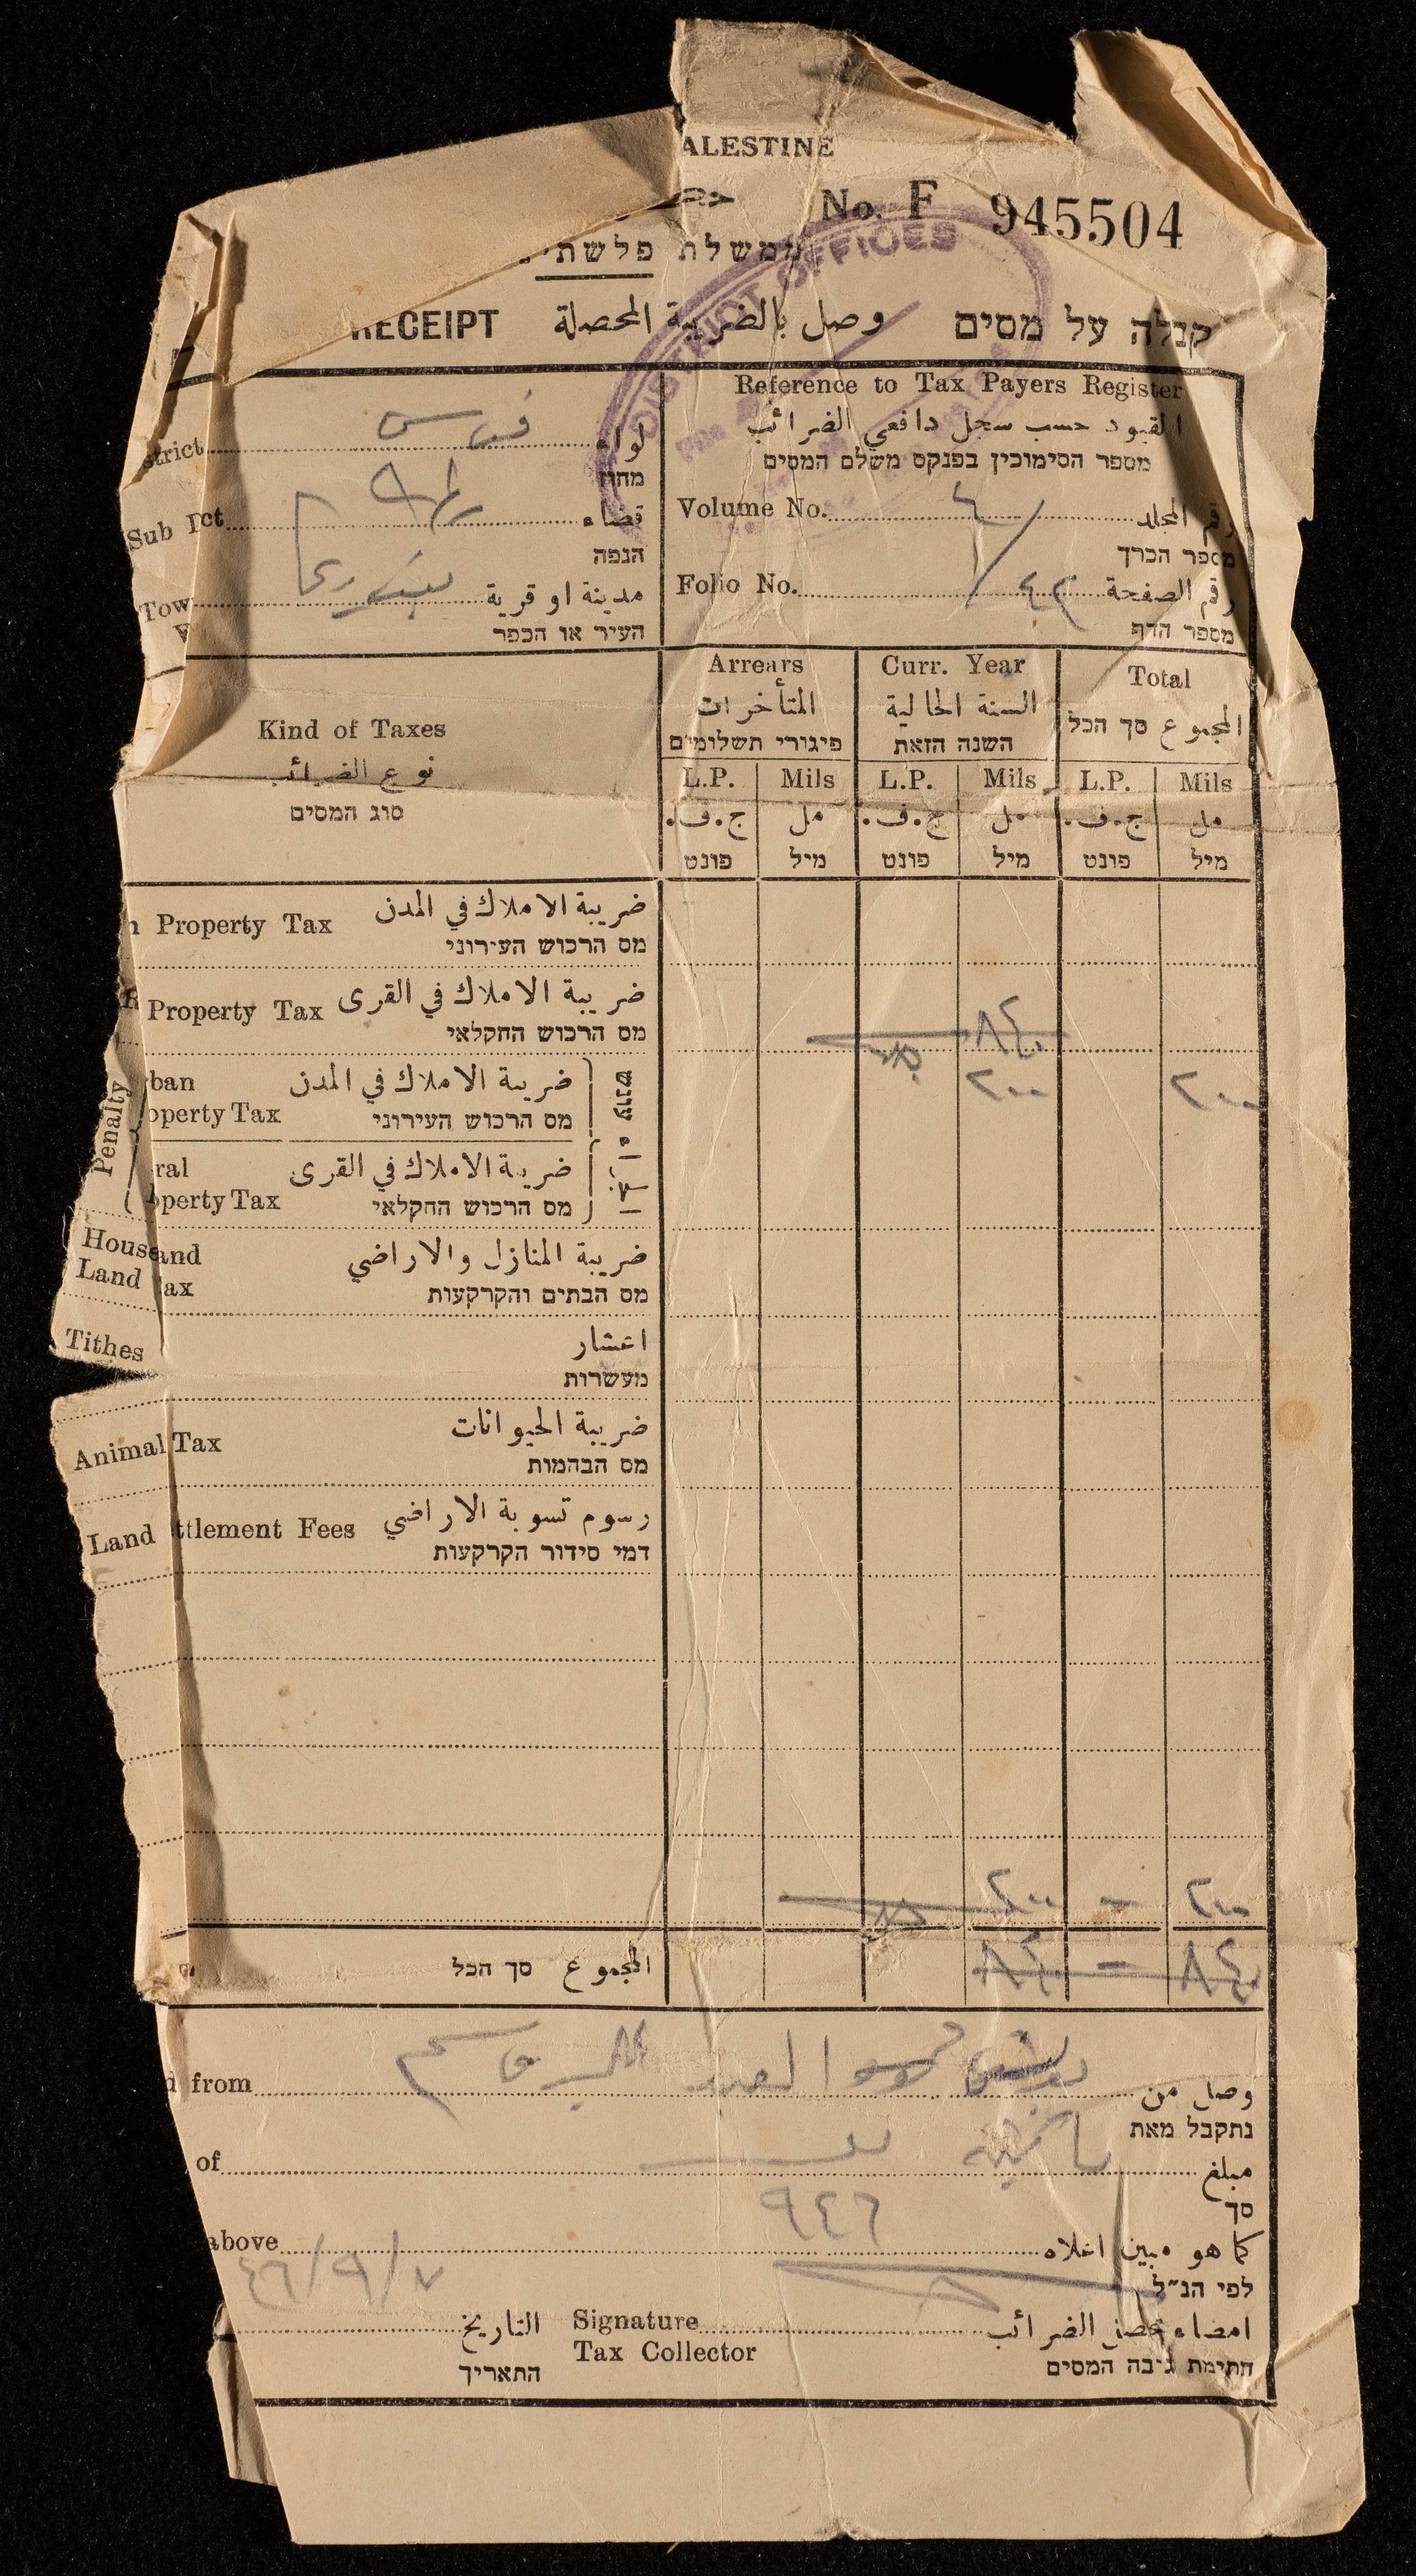 ALESTINE
No. F 945504
ממשלת פלשתי
RECEIPT وصل بالضريبة المحصلة קבלה על מסים
DISTRICT OFFICES
Reference to Tax Payers Register
القيود حسب سجل دافعي الضرائب
מספר הסימוכין בפנקס משלם המסים
strict لواء قدس
מחוז
Sub D ct قضاء
הנפה
Tow مدينة او قرية
העיר או הכפר
Volume No. ٤ رقم المجلد
מספר הכרך
Folio No. ٤٣ رقم الصفحة
מספר הדף
Kind of Taxes
نوع الضرائب
סוג המסים
Arrears Curr. Year Total
المتأخرات السنة الحالية المجموع סך הכל
פיגורי תשלומים השנה הזאת
L.P. Mils L.P. Mils L.P. Mils
ج.ف. مل ج.ف. مل ج.ف. مل
פונט מיל פונט מיל פונט מיל
n Property Tax ضريبة الاملاك في المدن
מס הרכוש העירוני
R Property Tax ضريبة الاملاك في القرى ٨٤٠
מס הרכוש החקלאי
Penalty
ban ضريبة الاملاك في المدن עונש ٢٠٠ ٢٠٠
operty Tax מס הרכוש העירוני
ral ضريبة الاملاك في القرى
operty Tax מס הרכוש החקלאי
House and ضريبة المنازل والاراضي
Land ax מס הבתים והקרקעות
Tithes اعشار
מעשרות
Animal Tax ضريبة الحيوانات
מס הבהמות
Land ttlement Fees رسوم تسوية الاراضي
דמי סידור הקרקעות
٢٠٠ — ٢٠٠
المجموع סך הכל ٨٤٠ — ٨٤٠
d from وصل من
נתקבל מאת
of مبلغ
סך
٩٤٦
above كما هو مبين اعلاه
לפי הנ״ל
٤٦/٩/٧
التاريخ Signature امضاء محصل الضرائب
התאריך Tax Collector חתימת גובה המסים